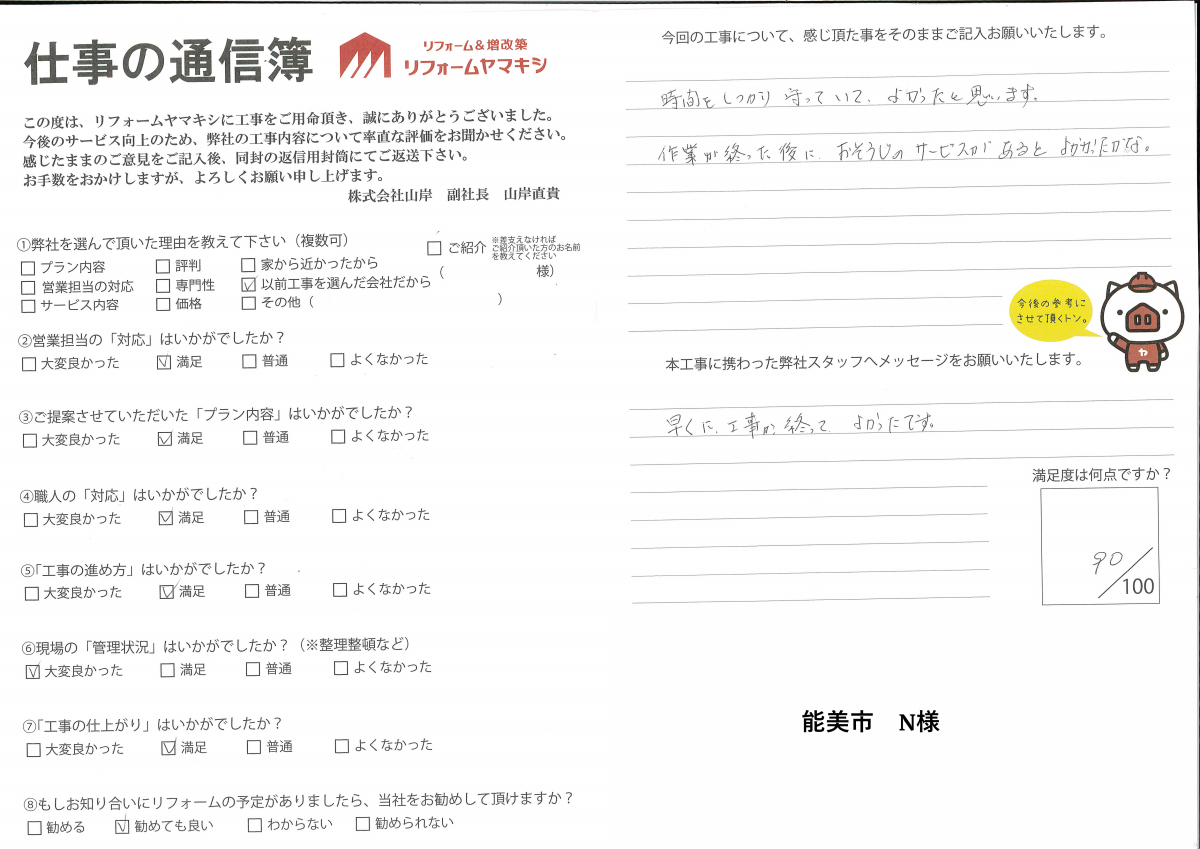 仕事の通信簿
リフォーム&増改築
リフォームヤマキシ
この度は、リフォームヤマキシに工事をご用命頂き、誠にありがとうございました。
今後のサービス向上のため、弊社の工事内容について率直な評価をお聞かせください。
感じたままのご意見をご記入後、同封の返信用封筒にてご返送下さい。
お手数をおかけしますが、よろしくお願い申し上げます。
株式会社山岸 副社長 山岸直貴
①弊社を選んで頂いた理由を教えて下さい（複数可）
□ プラン内容 □ 評判 □ 家から近かったから
□ 営業担当の対応 □ 専門性 ☑ 以前工事を選んだ会社だから
□ サービス内容 □ 価格 □ その他（ ）
□ ご紹介 ※差支えなければ
ご紹介頂いた方のお名前
を教えてください
（ 様）
②営業担当の「対応」はいかがでしたか？
□ 大変良かった ☑ 満足 □ 普通 □ よくなかった
③ご提案させていただいた「プラン内容」はいかがでしたか？
□ 大変良かった ☑ 満足 □ 普通 □ よくなかった
④職人の「対応」はいかがでしたか？
□ 大変良かった ☑ 満足 □ 普通 □ よくなかった
⑤「工事の進め方」はいかがでしたか？
□ 大変良かった ☑ 満足 □ 普通 □ よくなかった
⑥現場の「管理状況」はいかがでしたか？（※整理整頓など）
☑ 大変良かった □ 満足 □ 普通 □ よくなかった
⑦「工事の仕上がり」はいかがでしたか？
□ 大変良かった ☑ 満足 □ 普通 □ よくなかった
⑧もしお知り合いにリフォームの予定がありましたら、当社をお勧めして頂けますか？
□ 勧める ☑ 勧めても良い □ わからない □ 勧められない
今回の工事について、感じ頂た事をそのままご記入お願いいたします。
時間をしっかり守っていて、よかったと思います。
作業が終った後に、おそうじのサービスがあるとよかったかな。
今後の参考に
させて頂くトン。
ヤ
本工事に携わった弊社スタッフへメッセージをお願いいたします。
早くに、工事が終って、よかったです。
満足度は何点ですか？
90/100
能美市 N様